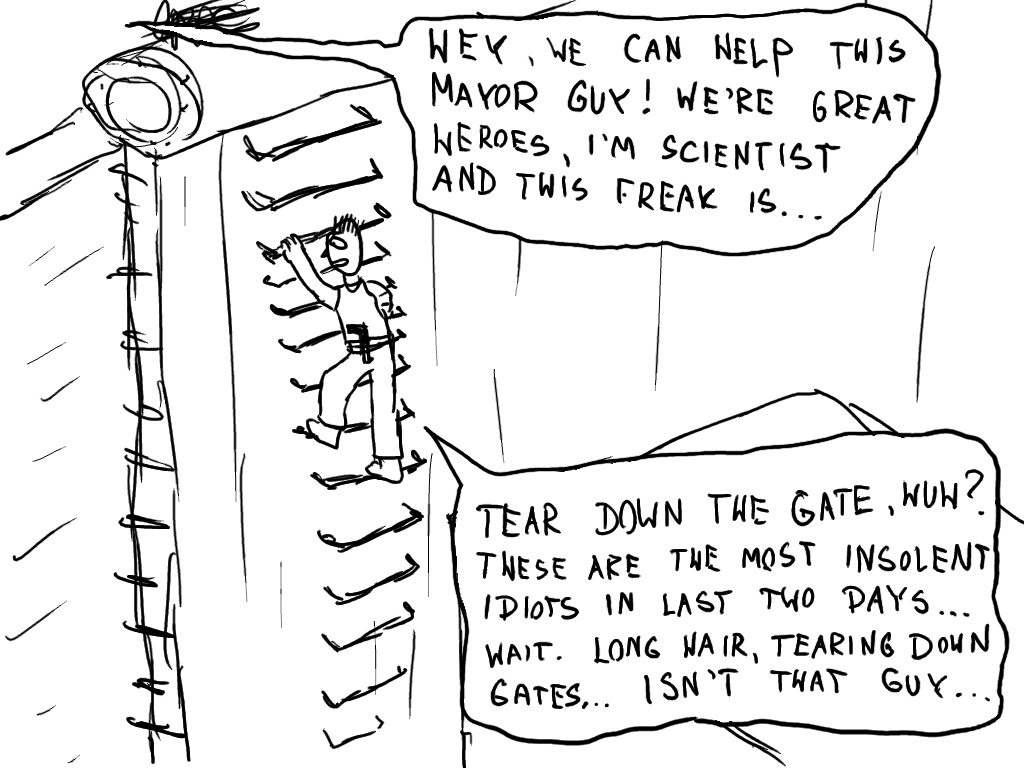 HEY, WE CAN HELP THIS
MAYOR GUY! WE'RE GREAT
HEROES, I'M SCIENTIST
AND THIS FREAK IS...
TEAR DOWN THE GATE, HUH?
THESE ARE THE MOST INSOLENT
IDIOTS IN LAST TWO DAYS...
WAIT. LONG HAIR, TEARING DOWN
GATES... ISN'T THAT GUY...